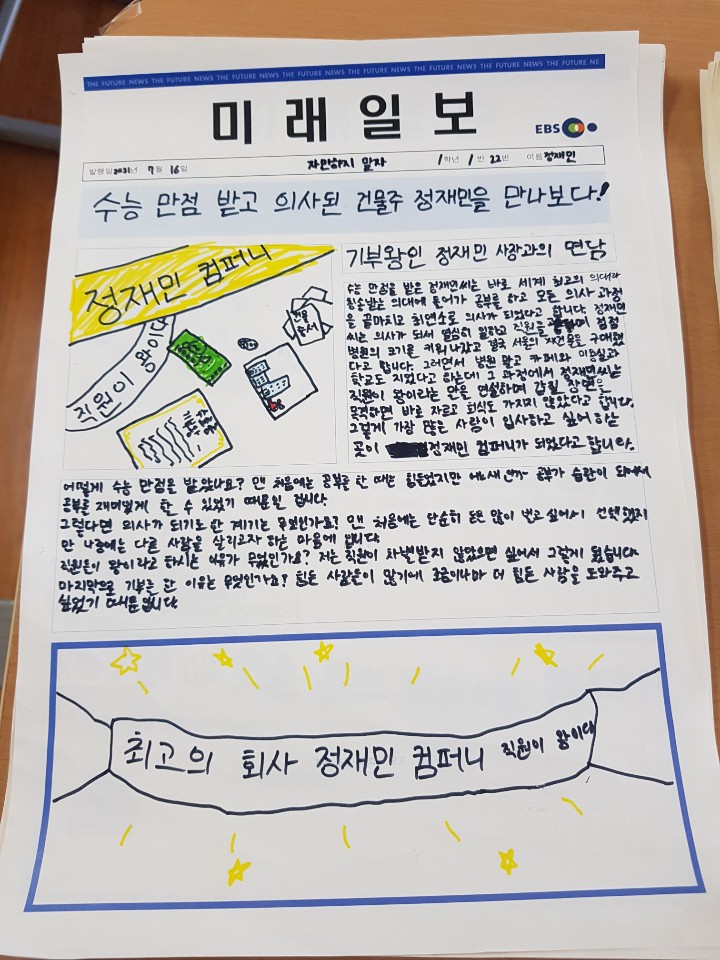 THE FUTURE NEWS THE FUTURE NEWS THE FUTURE NEWS THE FUTURE NEWS THE FUTURE NEWS THE FUTURE NEWS THE FUTURE NEWS THE FUTURE NE
미래일보
EBS
발행일 2031년 7월 16일 자만하지 말자 1학년 1반 22번 이름 정재민
수능 만점 받고 의사된 건물주 정재민을 만나보다!
정재민 컴퍼니
직원이 왕이다
건물
기부왕인 정재민 사장과의 면담
수능 만점을 받은 정재민씨는 바로 세계 최고의 의대라
칭송받는 의대에 들어가 공부를 하고 모든 의사 과정
을 끝마치고 최연소로 의사가 되었다고 합니다. 정재민
씨는 의사가 되서 열심히 일하고 직원을 점점
병원의 크기를 키워나갔고 결국 서울의 건물을 구매했
다고 합니다. 그러면서 병원 말고 카페와 미용실과
학교도 지었다고 하는데 그 과정에서 정재민씨는
직원이 왕이라는 말을 연설하며 갑질 장면을
목격하면 바로 자르고 회식도 가지지 않았다고 합니다.
그렇게 가장 많은 사람이 입사하고 싶어 하는
곳이 정재민 컴퍼니가 되었다고 합니다.
어떻게 수능 만점을 받았나요? 맨 처음에는 공부를 한 때는 힘들었지만 어느새 공부가 습관이 되어서
공부를 재미있게 할 수 있었기 때문일 겁니다.
그렇다면 의사가 되기로 한 계기는 무엇인가요? 맨 처음에는 단순히 돈을 많이 벌고 싶어서 선택했지
만 나중에는 다른 사람을 살리고자 하는 마음에 입니다
직원들이 왕이라고 하시는 이유가 무엇인가요? 저는 직원이 차별받지 않았으면 싶어서 그렇게 됬습니다
마지막으로 기부를 한 이유는 무엇인가요? 힘든 사람들이 많기에 조금이나마 더 힘든 사람을 도와주고
싶었기 때문입니다
최고의 회사 정재민 컴퍼니 직원이 왕이다